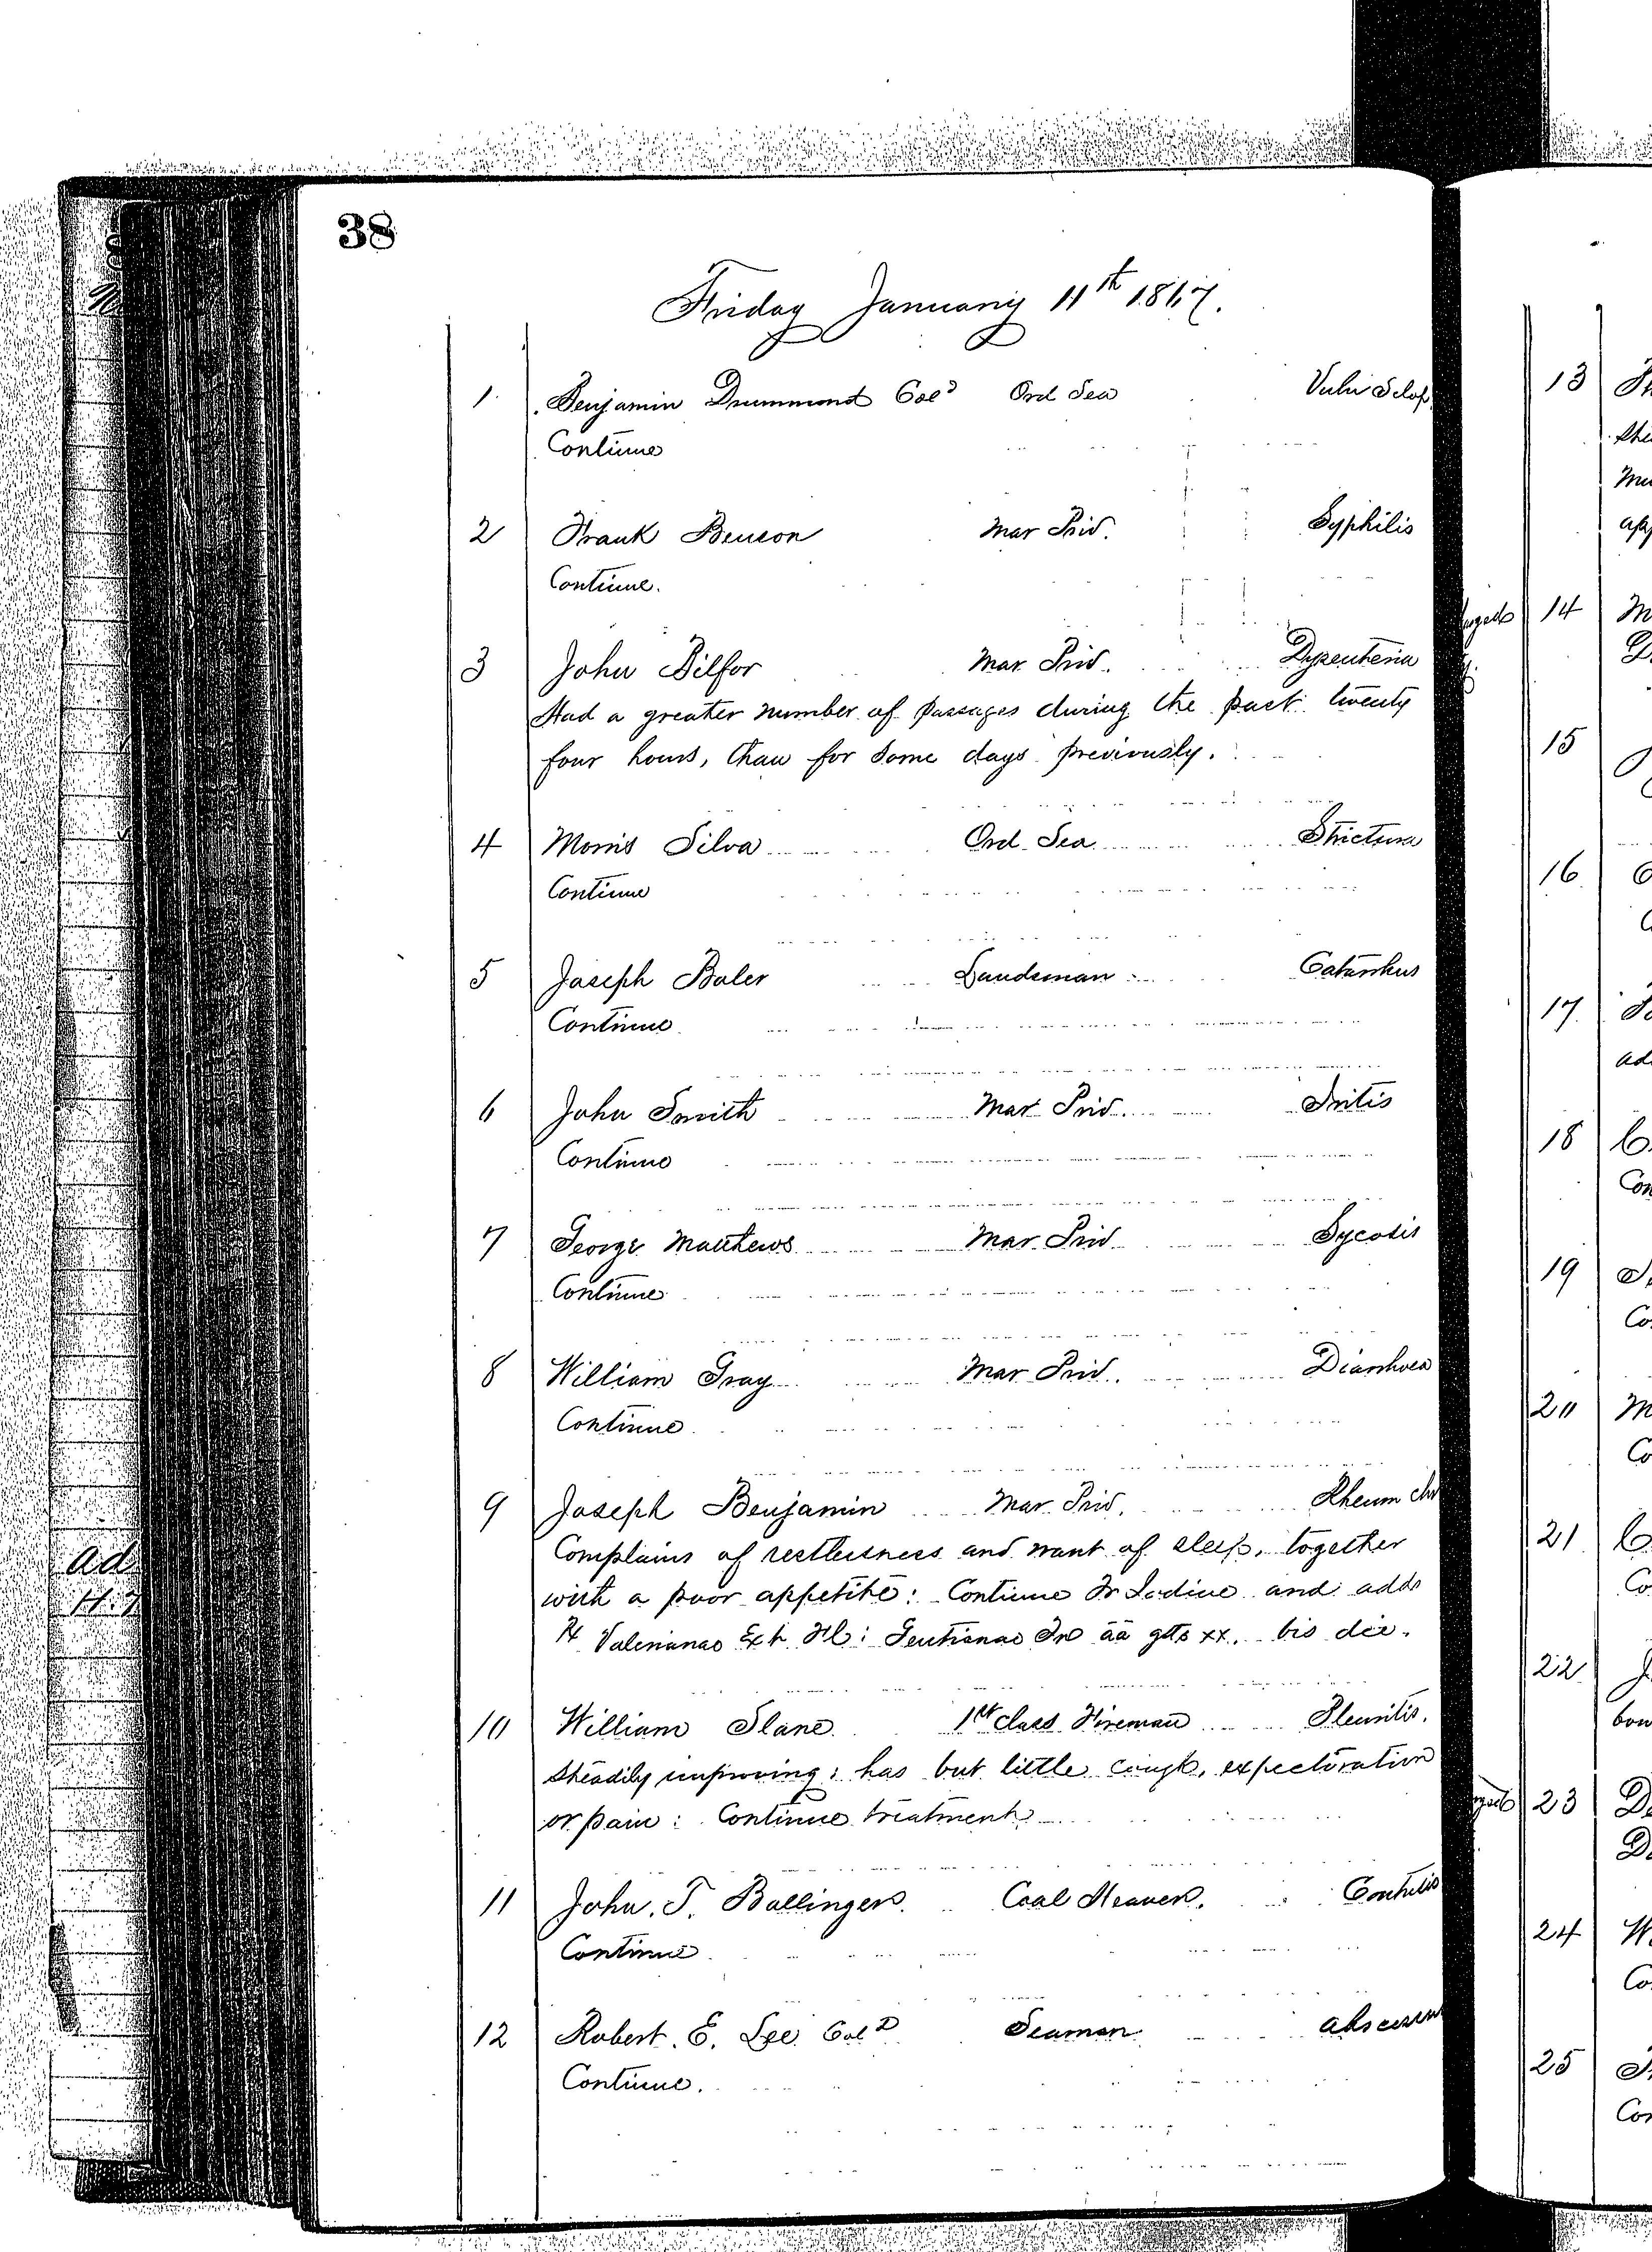 38
Friday January 11th 1867.
1 Benjamin Drummond Cold Ord Sea Vuln Sclop
Continue
2 Frank Benson Mar Priv. Syphilis
Continue.
3 John Pilfor Mar Priv. Dysenteria
Had a greater number of passages during the past twenty
four hours, than for some days previously.
4 Morris Silva Ord Sea Strictura
Continue
5 Joseph Baler Landsman Catarrhus
Continue
6 John Smith Mar Priv. Iritis
Continue
7 George Matthews Mar Priv Sycosis
Continue
8 William Gray Mar Priv. Diarrhoea
Continue
9 Joseph Benjamin Mar Priv. Rheum chr
Complains of restlessness and want of sleep, together
with a poor appetite: Continue Tr Iodine and add
℞ Valerianae Ext Fl: Gentianae Tr āā gtts xx. bis die.
10 William Slane 1st class Fireman Pleuritis.
Steadily improving; has but little cough, expectoration
or pain: Continue treatment
11 John. T. Ballinger. Coal Heaver.
Continue
12 Robert. E. Lee Cold Seaman Abscessus
Continue.
13
14
15
16
17
18
19
20
21
22
23
24
25